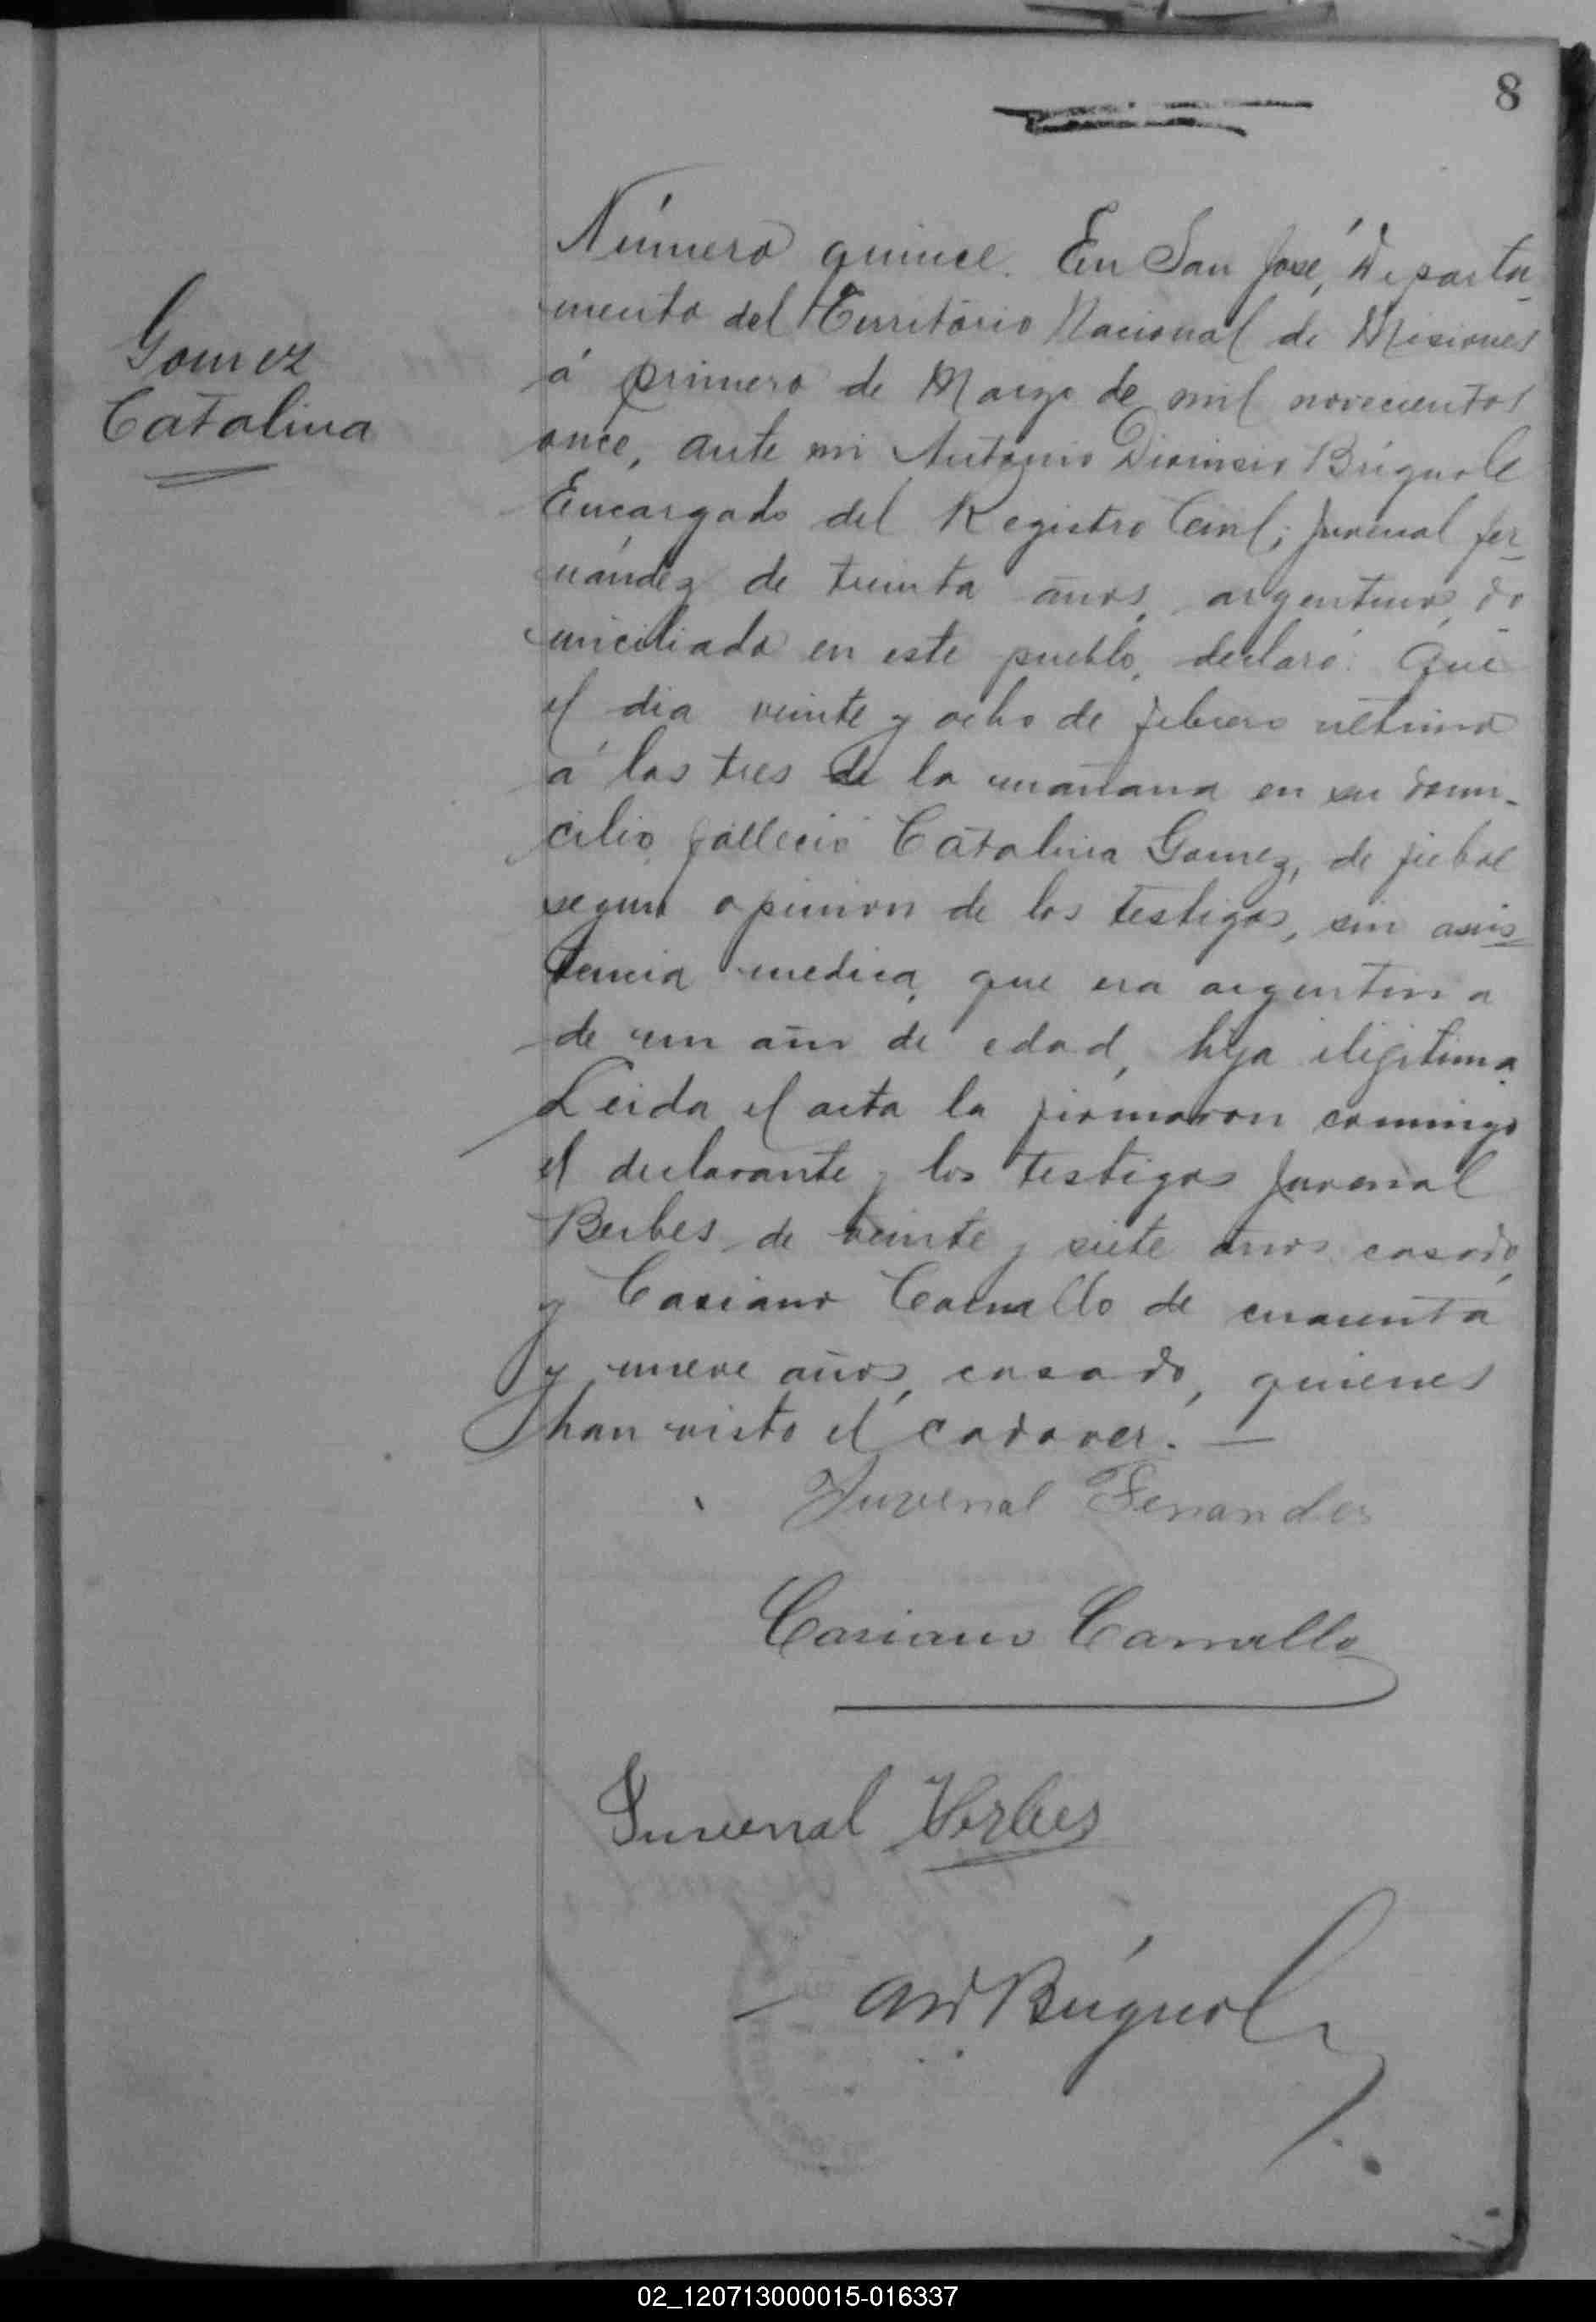 8
Gomez
Catalina
Número quince. En San José, Departa-
mento del Territorio Nacional de Misiones
á primero de Marzo de mil novecientos
once, ante mi Antonio Dionisio Brignole
Encargado del Registro Civil; Juvenal Fer-
nández de treinta años, argentino, do-
miciliado en este pueblo, declaró: Que
el dia veinte y ocho de febrero ultimo
á las tres de la mañana en su domi-
cilio, falleció Catalina Gomez, de fiebre
segun opinion de los testigos, sin asis-
tencia medica, que era argentina
de un año de edad, hija ilegitima.
Leida el acta la firmaron conmigo
el declarante y los testigos Juvenal
Berbes de veinte y siete años casado,
y Casiano Carvallo de cuarenta
y nueve años, casado, quienes
han visto el cadaver. —
Juvenal Fernandes
Casiano Carvallo
Juvenal Verbes
AD Brignole
02_120713000015-016337